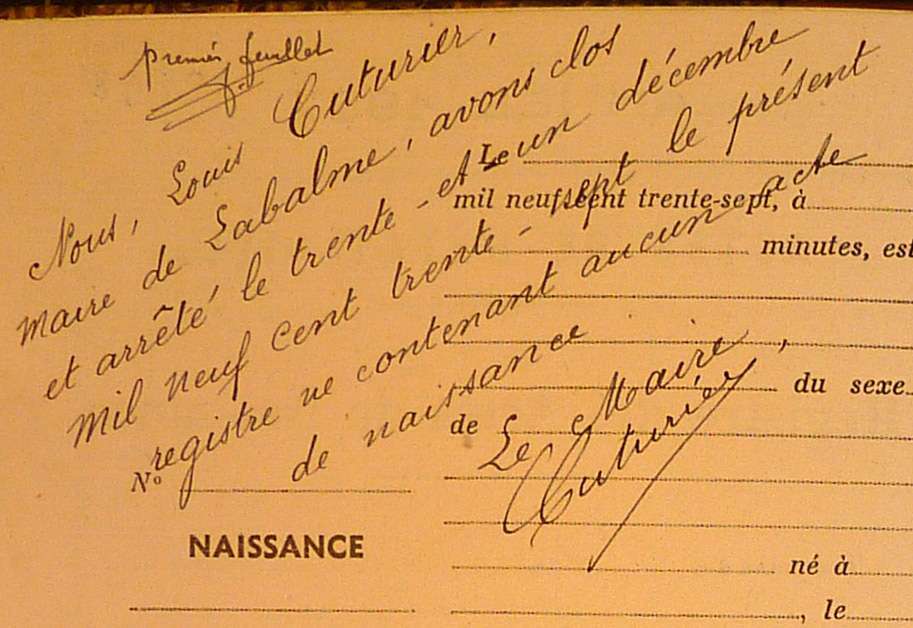 premier feuillet
Nous, Louis Cuturier,
maire de Labalme, avons clos
et arrêté le trente-et-un décembre
mil neuf cent trente-sept le présent
registre ne contenant aucun acte
de naissance
Le Maire,
Cuturier
Le
mil neuf cent trente-sept, à
minutes, est
du sexe
de
N°
NAISSANCE
né à
, le